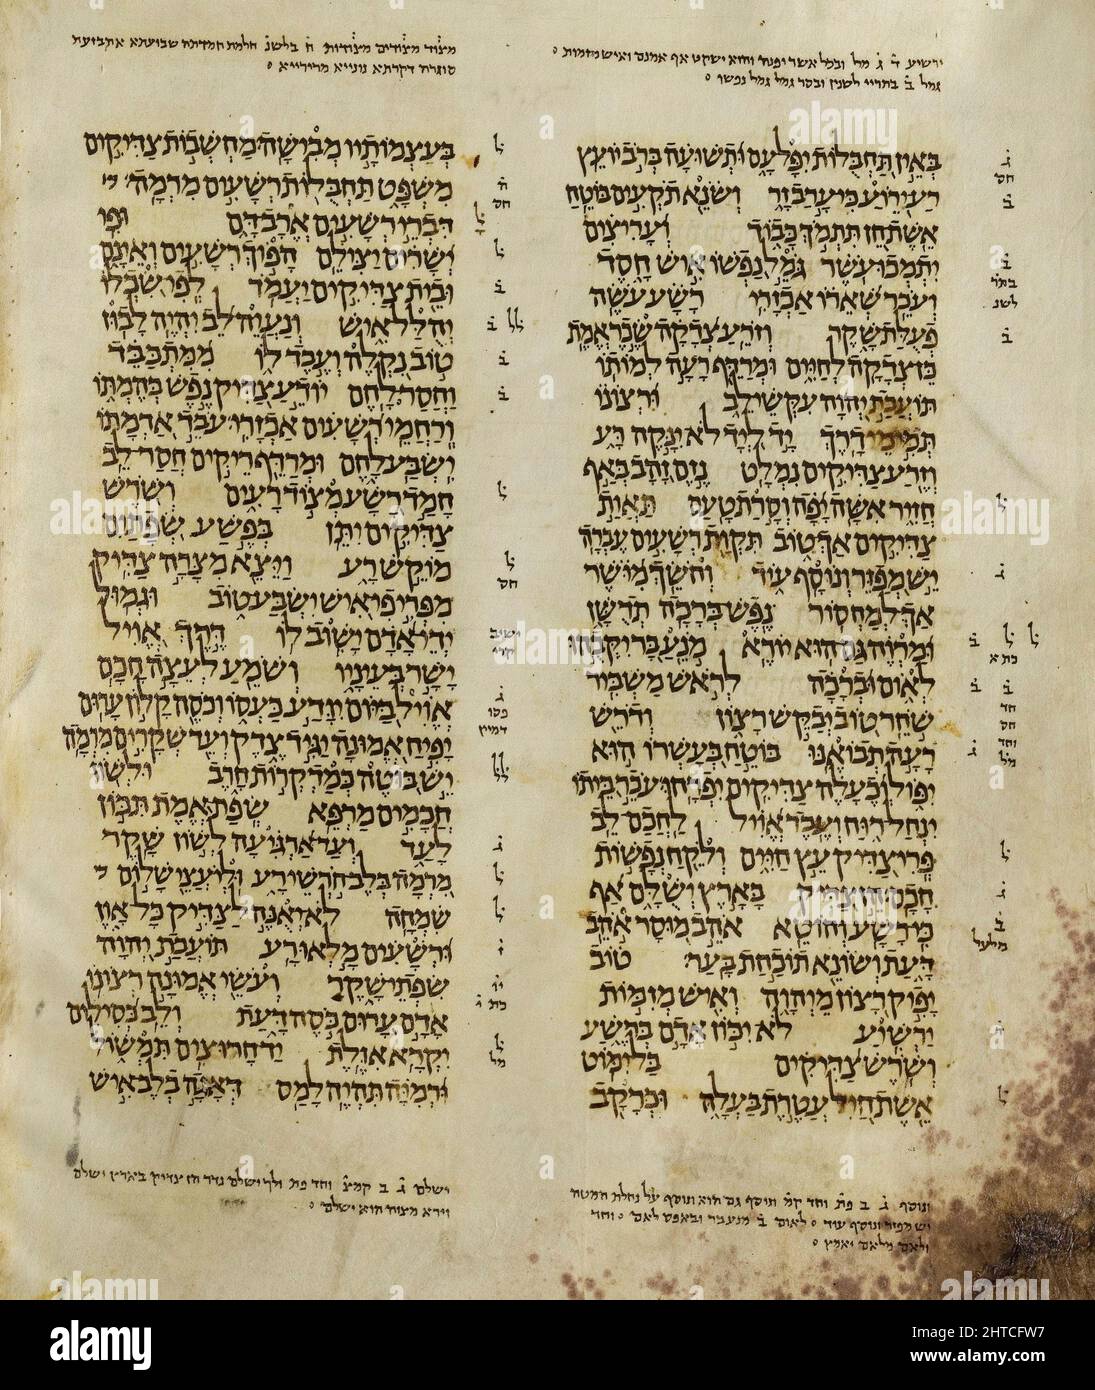 ירשיע ד̇ ג̇ מל ובכל אשר יפנה והוא ישקט אף אמנם ואיש מזמות
גמל ב̇ בתריי לשנין ובסר גמל גמל נפשו
באין תחבלות יפל עם ותשועה ברב יועץ
רע ירוע כי ערב זר ושנא תקעים בוטח
אשת חן תתמך כבוד ועריצים
יתמכו עשר גמל נפשו איש חסד
ועכר שארו אכזרי רשע עשה
פעלת שקר וזרע צדקה שכר אמת
כן צדקה לחיים ומרדף רעה למותו
תועבת יהוה עקשי לב ורצונו
תמימי דרך יד ליד לא ינקה רע
וזרע צדיקים נמלט נזם זהב באף
חזיר אשה יפה וסרת טעם תאות
צדיקים אך טוב תקות רשעים עברה
יש מפזר ונוסף עוד וחשך מישר
אך למחסור נפש ברכה תדשן
ומרוה גם הוא יורא מנע בר יקבהו
לאום וברכה לראש משביר
שחר טוב יבקש רצון ודרש
רעה תבואנו בוטח בעשרו הוא
יפול וכעלה צדיקים יפרחו עכר ביתו
ינחל רוח ועבד אויל לחכם לב
פרי צדיק עץ חיים ולקח נפשות
חכם הן צדיק בארץ ישלם אף
כי רשע וחוטא אהב מוסר אהב
דעת ושונא תוכחת בער טוב
יפיק רצון מיהוה ואיש מזמות
ירשיע לא יכון אדם ברשע
ושרש צדיקים בל ימוט
אשת חיל עטרת בעלה וכרקב
ונוסף ג̇ ב פת̇ וחד קמ̇ תוסף גם הוא ונוסף על נחלת המטה
יש מפזר ונוסף עוד לאום ב̇ מנע בר ובאפס לאם וחד
ולאם מלאם יאמץ
מצוד מצודים מצודות ח̇ בלשנ̇ חלמת חמדתה
סוגרת דקרתא נונייא מרירייא
בעצמותיו מבישה מחשבות צדיקים
משפט תחבלות רשעים מרמה
דברי רשעים ארב דם ופי
ישרים יצילם הפוך רשעים ואינם
ובית צדיקים יעמד לפי שכלו
יהלל איש ונעוה לב יהיה לבוז
טוב נקלה ועבד לו ממתכבד
וחסר לחם יודע צדיק נפש בהמתו
ורחמי רשעים אכזרי עבד אדמתו
ישבע לחם ומרדף ריקים חסר לב
חמד רשע מצוד רעים ושרש
צדיקים יתן בפשע שפתים
מוקש רע ויצא מצרה צדיק
מפרי פי איש ישבע טוב וגמול
ידי אדם ישוב לו דרך אויל
ישר בעיניו ושמע לעצה חכם
אויל ביום יודע כעסו וכסה קלון ערום
יפיח אמונה יגיד צדק ועד שקרים מרמה
יש בוטה כמדקרות חרב ולשון
חכמים מרפא שפת אמת תכון
לעד ועד ארגיעה לשון שקר
מרמה בלב חרשי רע וליעצי שלום
שמחה לא יאנה לצדיק כל און
ורשעים מלאו רע תועבת יהוה
שפתי שקר ועשי אמונה רצונו
אדם ערום כסה דעת ולב כסילים
יקרא אולת יד חרוצים תמשול
ורמיה תהיה למס דאגה בלב איש
ישלם ג̇ ב קמצ̇ וחד פת ולך ישלם נדר הן צדיק בארץ ישלם
וירא מצוה הוא ישלם
alamy
Image ID: 2HTCFW7
www.alamy.com